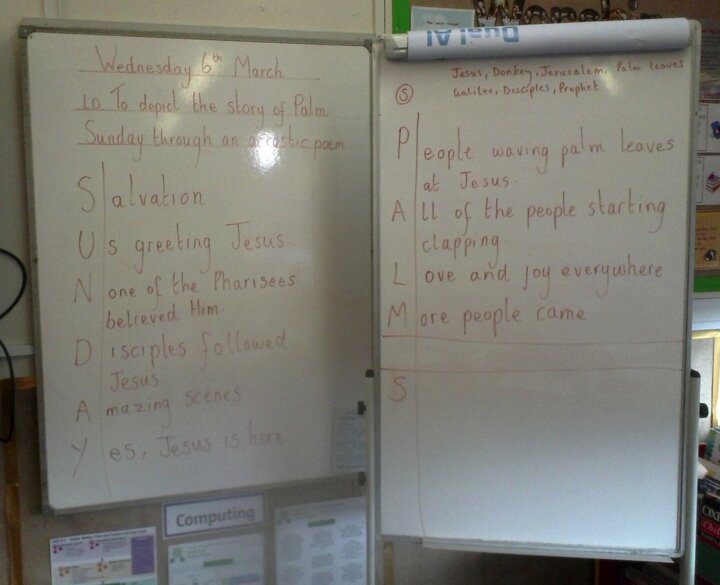 Wednesday 6th March
LO To depict the story of Palm
Sunday through an acrostic poem
Salvation
Us greeting Jesus.
None of the Pharisees
believed Him.
Disciples followed
Jesus
Amazing scenes
Yes, Jesus is here
Dual AI
Jesus, Donkey, Jerusalem, Palm leaves
Galilee, Disciples, Prophet
S
People waving palm leaves
at Jesus
All of the people starting
clapping.
Love and joy everywhere
More people came
S
Computing